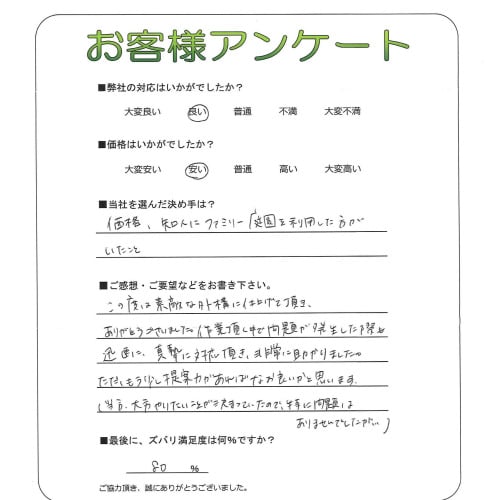 お客様アンケート
■弊社の対応はいかがでしたか？
大変良い 良い 普通 不満 大変不満
■価格はいかがでしたか？
大変安い 安い 普通 高い 大変高い
■当社を選んだ決め手は？
価格、知人にファミリー庭園を利用した方が
いたこと
■ご感想・ご要望などをお書き下さい。
この度は素敵な外構に仕上げて頂き、
ありがとうございました。作業頂く中で問題が発生した際も
迅速に、真摯に対応頂き、非常に助かりました。
ただ、もう少し提案力があればなお良いかと思います。
(当方、大方やりたいことが決まっていたので、特に問題は
ありませんでしたが…)
■最後に、ズバリ満足度は何％ですか？
80 ％
ご協力頂き、誠にありがとうございました。